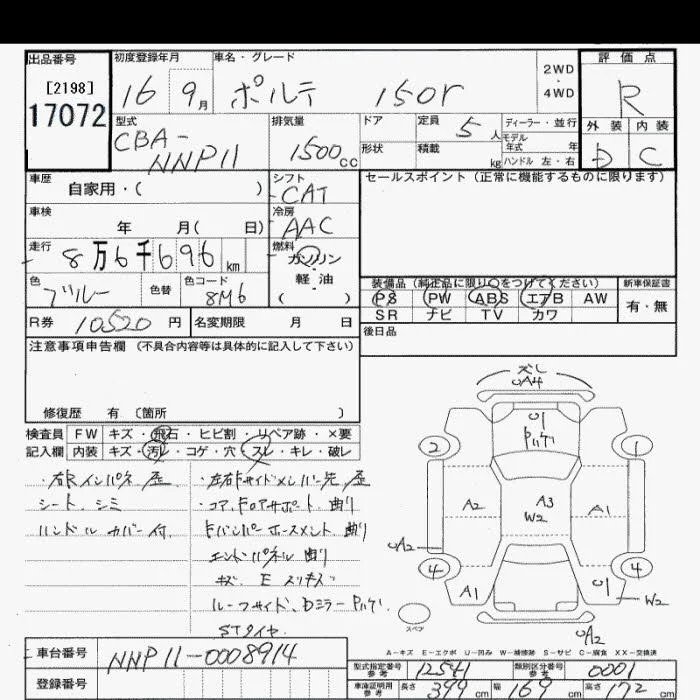 出品番号 初度登録年月 車名・グレード 評価点
[2198]
17072
16 9月 ポルテ 150r 2WD・4WD R
型式 排気量 ドア 定員 5人 ディーラー・並行 外装 内装
CBA-NNP11 1500cc 形状 積載 kg モデル年式 年 ハンドル 左・右 D C
車歴 自家用・( ) シフト CAT セールスポイント(正常に機能するものに限ります)
車検 年 月( 日) 冷房 AAC
走行 8万6千696km 燃料 ガソリン・軽油( )
色 ブルー 色替 色コード 8M6
装備品(純正品に限り○をつけてください) 新車保証書
PS PW ABS エアB AW 有・無
SR ナビ TV カワ
R券 10520円 名変期限 月 日 後日品
注意事項申告欄(不具合内容等は具体的に記入して下さい)
修復歴 有〔箇所 〕
検査員 FW キズ・飛石・ヒビ割・リペア跡・×要
記入欄 内装 キズ・汚レ・コゲ・穴・スレ・キレ・破レ
・右Rインパネ 歪
シート、シミ
ハンドルカバー付
・左右Fサイドメンバー先 歪
・コア、Fロアサポート 曲り
Fバンパーホースメント 曲り
エンドパネル 曲り
キズ E スリキズ
ルーフサイド、Dミラー
STタイヤ
ズレ
UA4
U1
2 1
A2 A3 W2 A1
UA2
4 4
A1 U1 W2
UA2
スペア
A-キズ E-エクボ U-凹み W-補修跡 S-サビ C-腐食 XX-交換済
車台番号 NNP11-0008914
型式指定番号参考 12541 類別区分番号参考 0001
登録番号
車庫証明用参考 長さ 399cm 幅 169cm 高さ 172cm